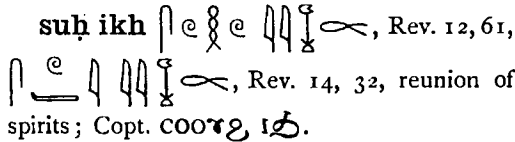 suḥ ikh 𓋴𓏲𓎛𓏲𓇌, Rev. 12, 61,
𓋴𓏲 𓇋 𓇌, Rev. 14, 32, reunion of
spirits; Copt. ⲥⲟⲟⲩϩ ⲓϧ.